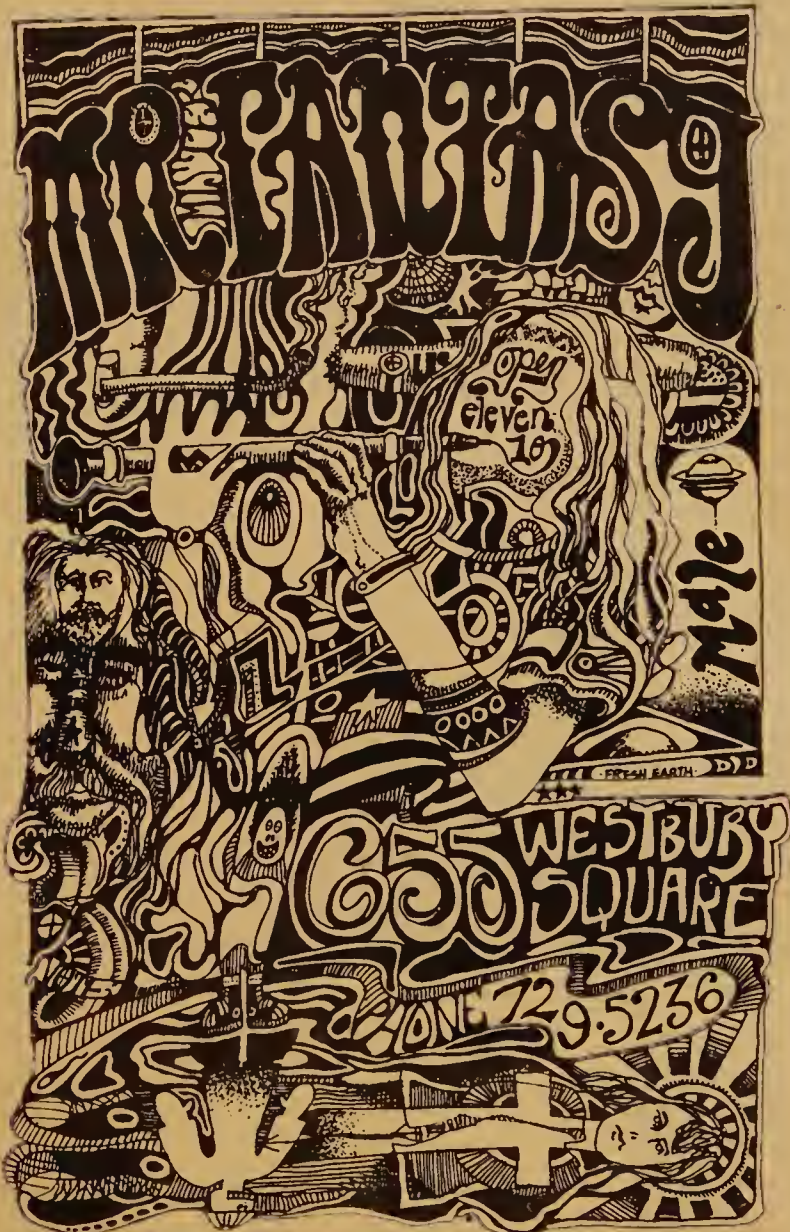 MR. FANTASY
open
eleven.
10
Male
·FRESH EARTH·
655 WESTBURY
SQUARE
PHONE 729·5236